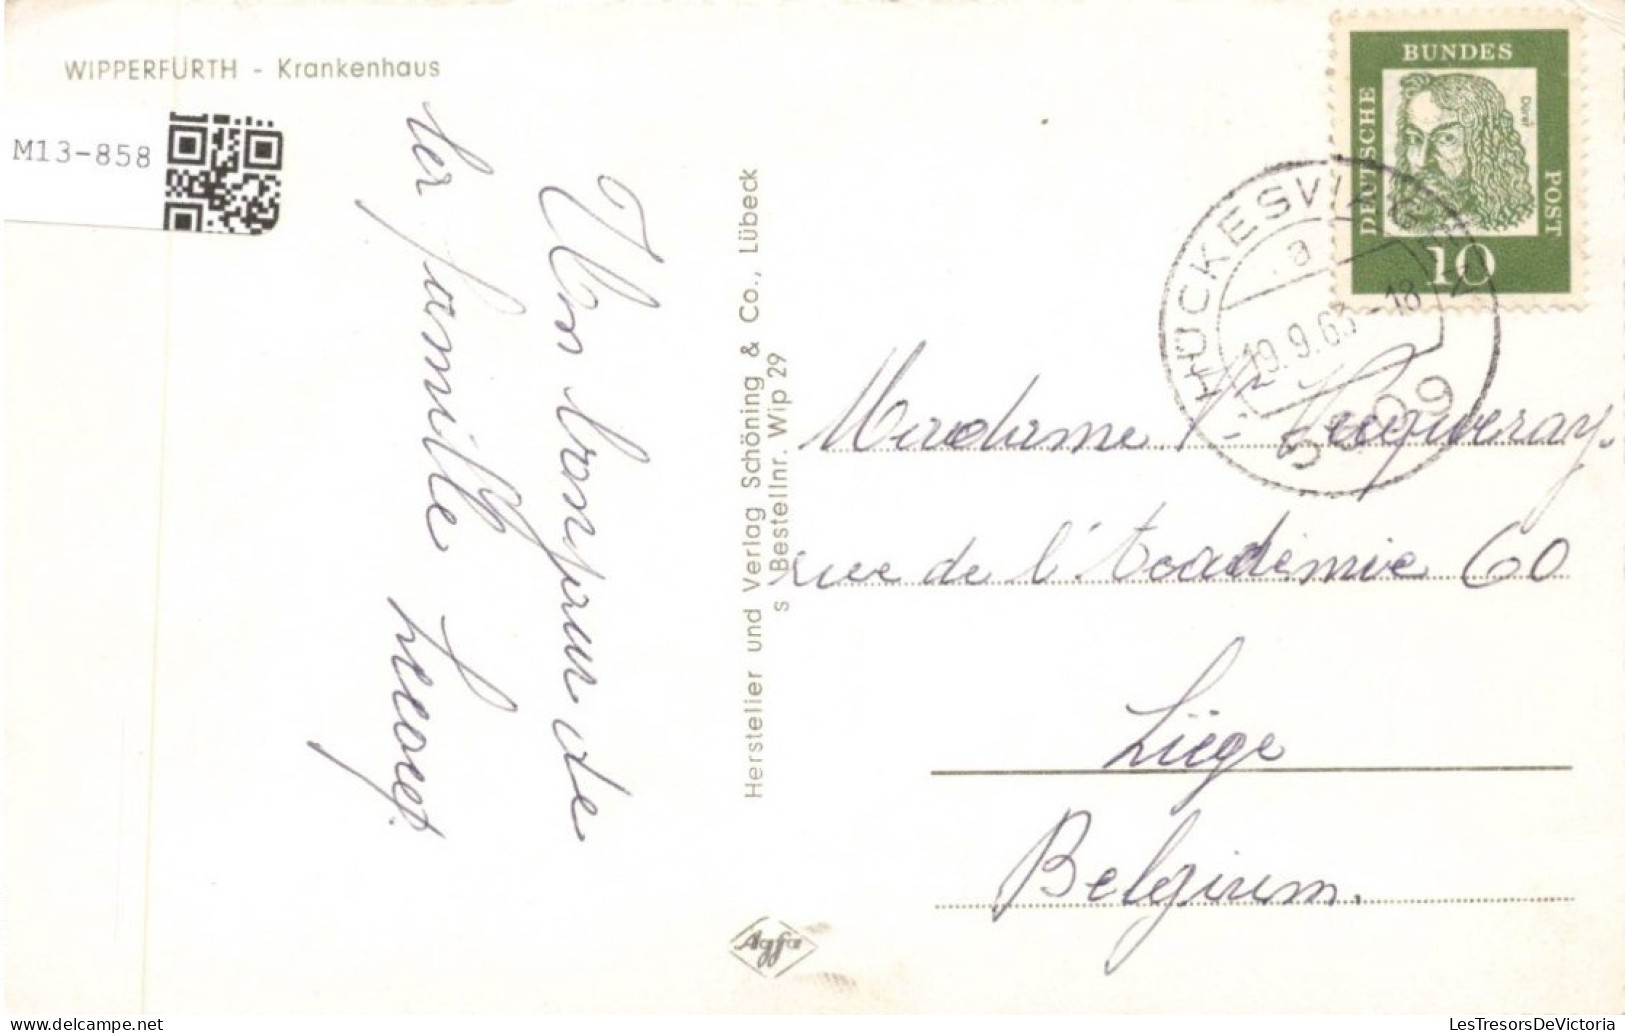 WIPPERFÜRTH - Krankenhaus
M13-858
Un bonjour de
la famille
Hersteller und Verlag Schöning & Co., Lübeck
s Bestellnr. Wip 29
Agfa
DEUTSCHE
BUNDES
POST
Dürer
10
HÜCKESWAGEN
a
19.9.63-18
5609
Madame
rue de l'Académie 60
Liège
Belgium.
LesTresorsDeVictoria